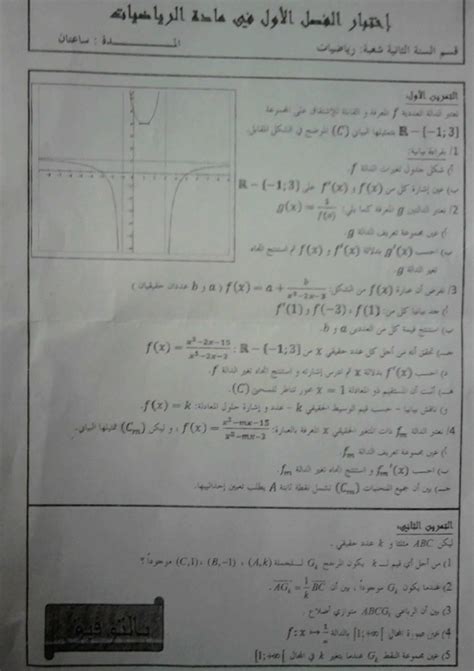 إختبار الفصل الأول في مادة الرياضيات
قسم السنة الثانية شعبة: رياضيات المـــدة: ساعتان
التمرين الأول:
نعتبر الدالة العددية f المعرفة و القابلة للإشتقاق على المجموعة
ℝ − {−1; 3} تمثيلها البياني (C) الموضح في الشكل المقابل.
1/ بقراءة بيانية:
أ) شكل جدول تغيرات الدالة f.
ب) عين إشارة كل من f(x) و f'(x) على ℝ − {−1; 3}
2/ نعتبر الدالتين g المعرفة كما يلي: g(x) = 1/f(x)
أ) عين مجموعة تعريف الدالة g.
ب) احسب g'(x) بدلالة f'(x) و f(x) ثم استنتج اتجاه
تغير الدالة g.
3/ نفرض أن عبارة f(x) من الشكل: f(x) = a + b/(x²−2x−3) (a و b عددان حقيقيان)
أ) جد بيانيا كل من: f(1)، f(−3) و f'(1)
ب) استنتج قيمة كل من العددين a و b.
جـ) تحقق أنه من أجل كل عدد حقيقي x من ℝ − {−1; 3}: f(x) = (x²−2x−15)/(x²−2x−3)
د) احسب f'(x) بدلالة x ثم ادرس إشارته و استنتج اتجاه تغير الدالة f.
هـ) أثبت أن المستقيم ذو المعادلة x = 1 محور تناظر للمنحني (C).
و) ناقش بيانيا - حسب قيم الوسيط الحقيقي k - عدد و إشارة حلول المعادلة: f(x) = k.
4/ نعتبر الدالة f_m ذات المتغير الحقيقي x المعرفة بالعبارة: f(x) = (x²−mx−15)/(x²−mx−3)، و ليكن (C_m) تمثيلها البياني.
أ) عين مجموعة تعريف الدالة f_m
ب) احسب f_m'(x) و استنتج اتجاه تغير الدالة f_m
جـ) بين أن جميع المنحنيات (C_m) تشمل نقطة ثابتة A يطلب تعيين إحداثييها.
التمرين الثاني:
ليكن ABC مثلثا و k عدد حقيقي.
1) من أجل أي قيم لـ k يكون المرجح G_k للجملة (A, k)، (B, −1)، (C, 1) موجوداً؟
2) عندما يكون G_k موجودا، بين أن AG_k = 1/k BC.
3) بين أن الرباعي ABCG₁ متوازي أضلاع.
4) عين صورة المجال [1; +∞[ بالدالة f: x ↦ 1/x
5) عين مجموعة النقط G_k عندما يتغير k في المجال [1; +∞[
بالتوفيق